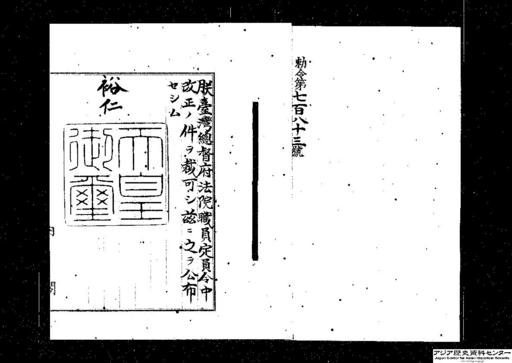 勅令第七百八十三號
朕臺灣總督府法院職員定員令中
改正ノ件ヲ裁可シ茲ニ之ヲ公布
セシム
裕仁
天皇
御璽
内閣
アジア歴史資料センター
Japan Center for Asian Historical Records